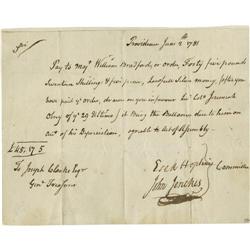 Providence June 2th 1781
Pay to Majr William Bradford, or order, Forty five pounds
Seventeen Shillings & five pence, Lawfull Silver money (after you
have paid yr order, drawn on you in favour his Collo Jeremiah
Olney of yr 29 Ultimo) it Being the Ballance due to him on
acct of his Depreciation, agreable to Act of Assembly.
£45.17.5
To Joseph Clarke Esqr
Genl Treasurer
Esek Hopkins
Committee
John Jenckes